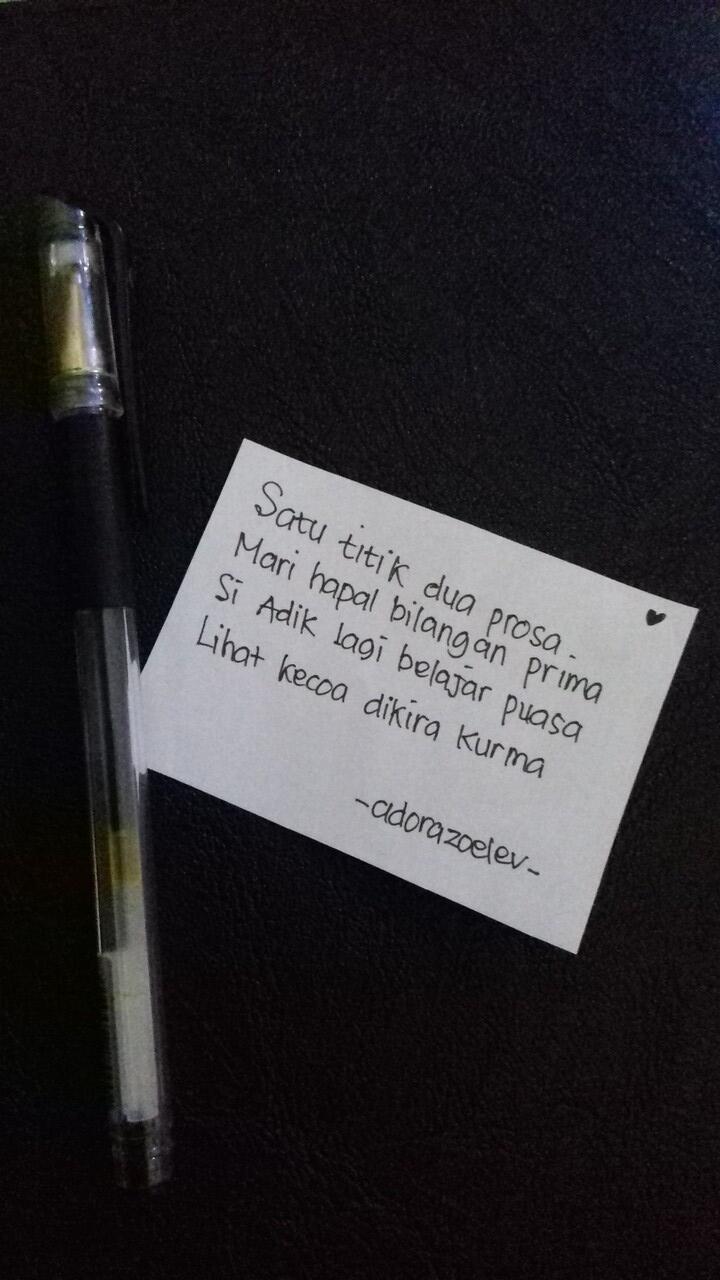 Satu titik dua prosa.
Mari hapal bilangan prima
Si Adik lagi belajar puasa
Lihat kecoa dikira kurma
-adorazoelev-